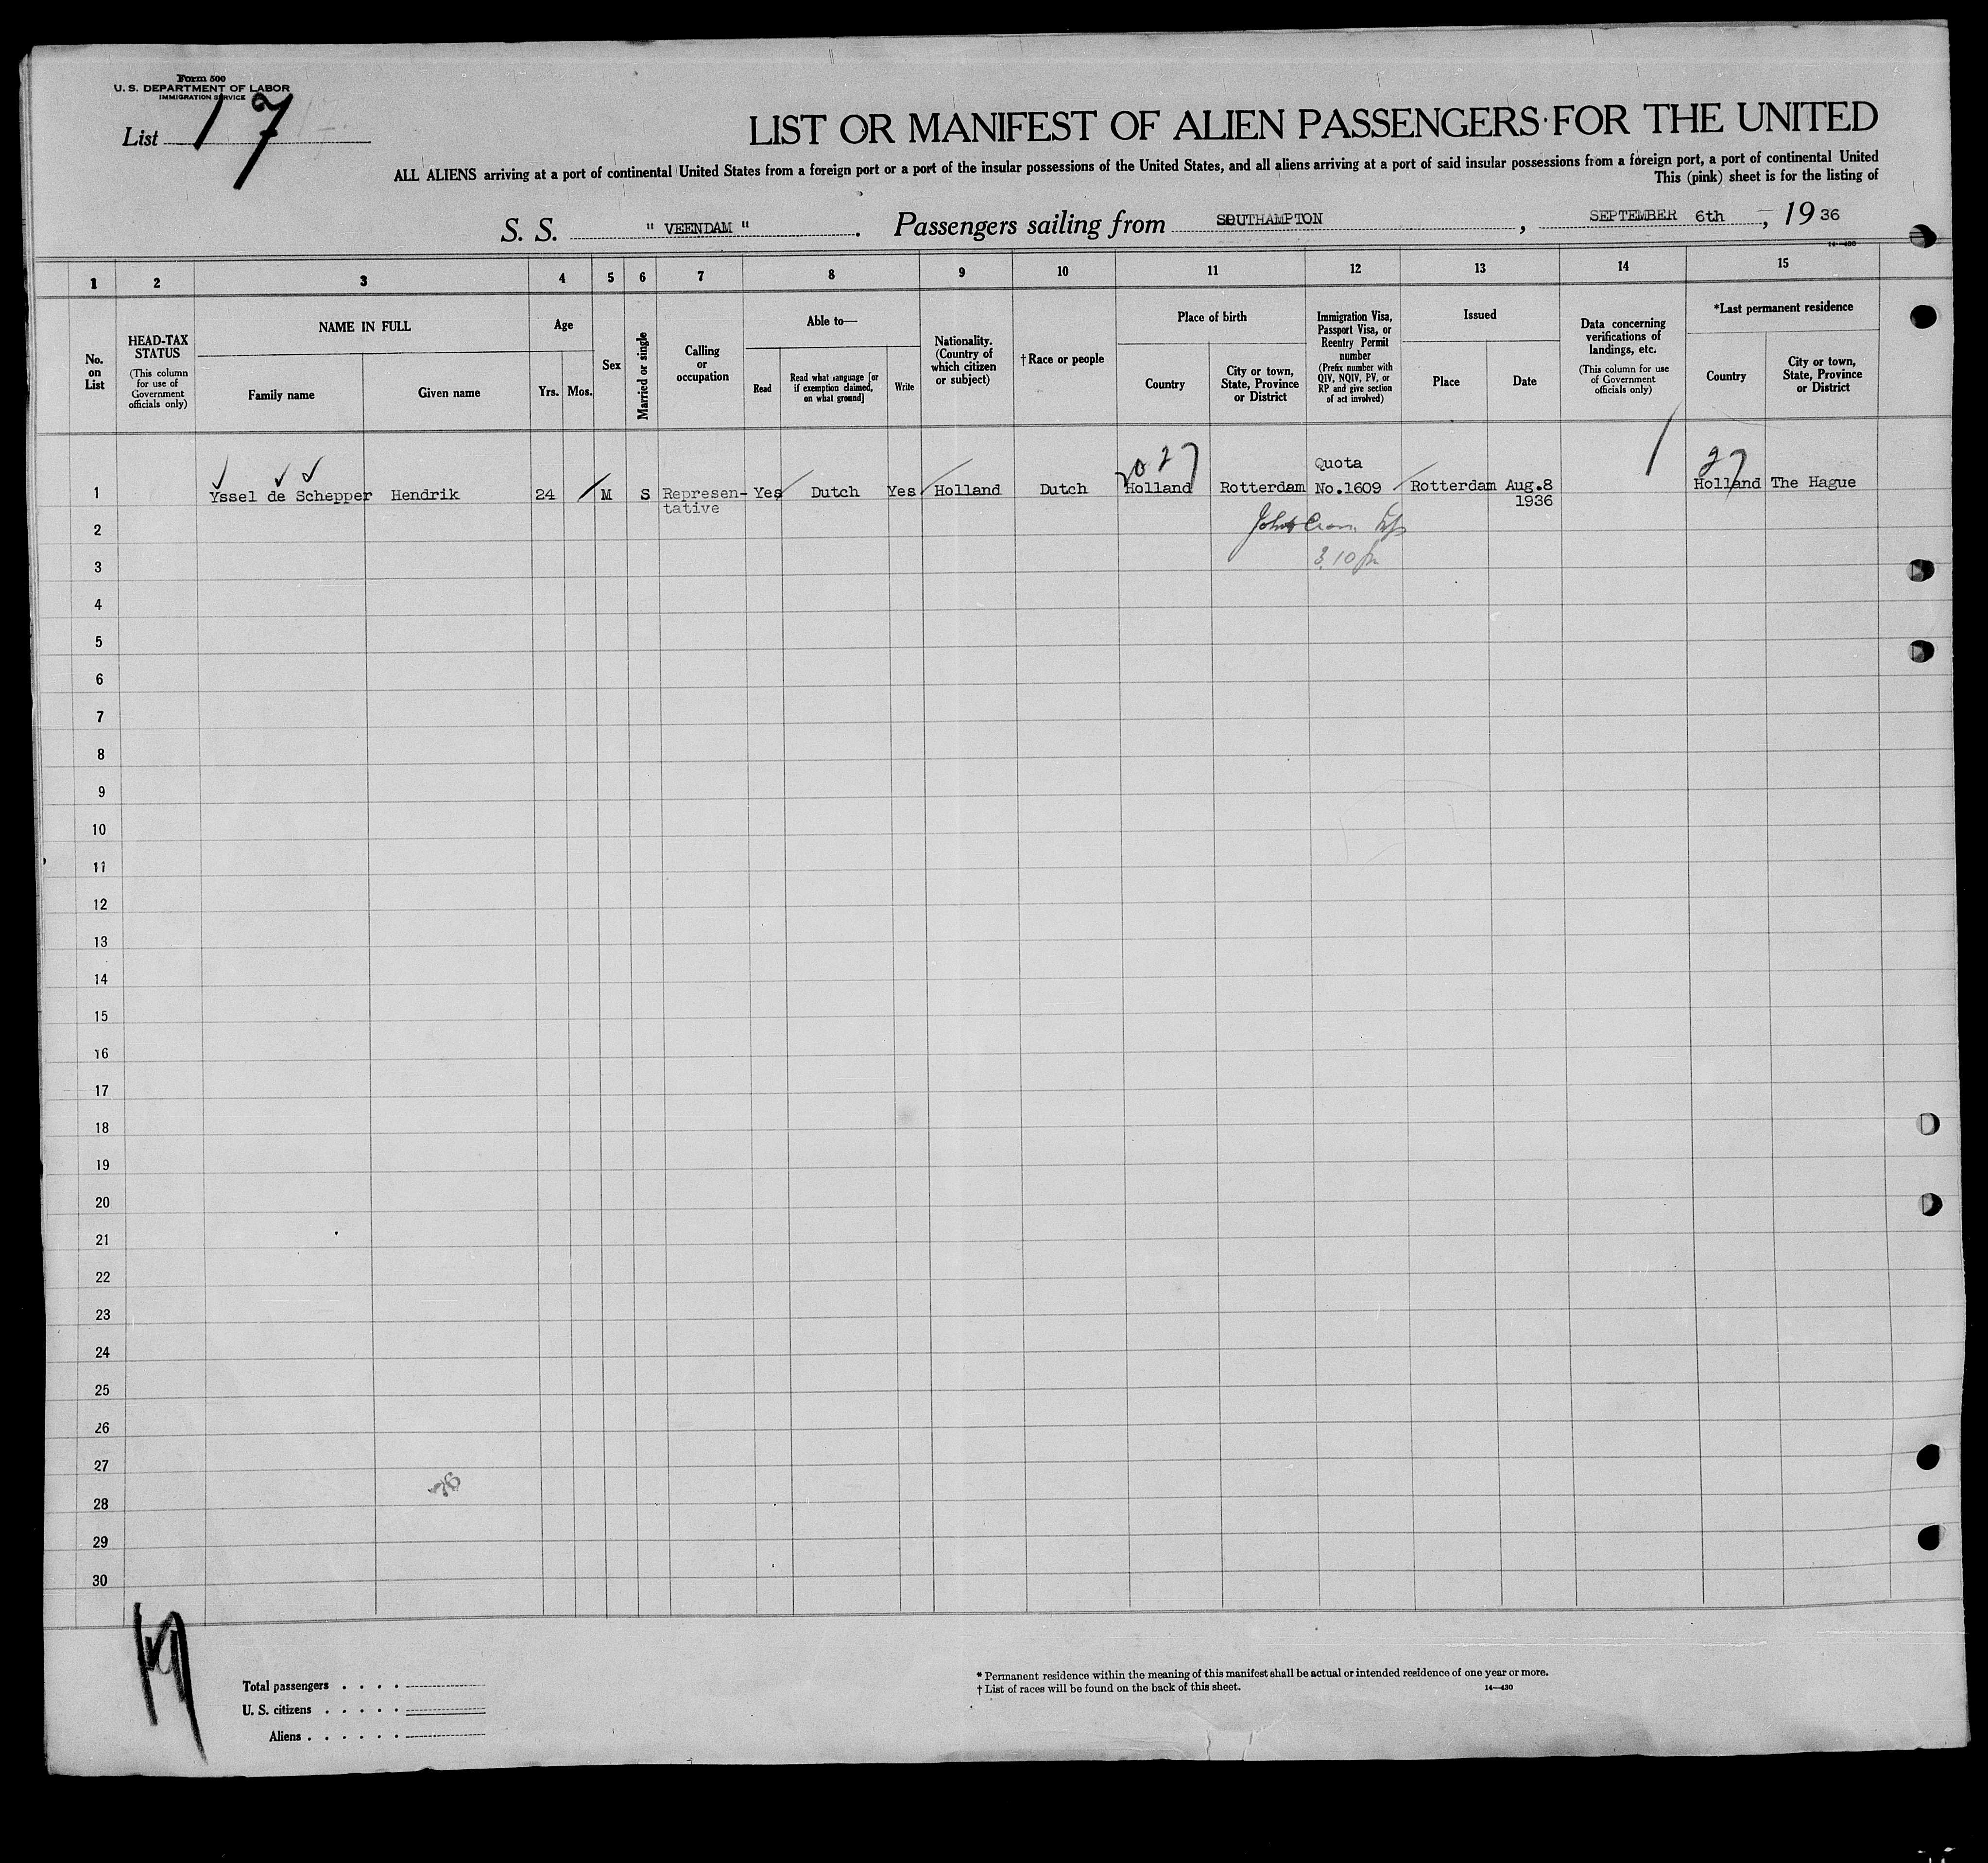 Form 500
U. S. DEPARTMENT OF LABOR
IMMIGRATION SERVICE
List 17
LIST OR MANIFEST OF ALIEN PASSENGERS FOR THE UNITED
ALL ALIENS arriving at a port of continental United States from a foreign port or a port of the insular possessions of the United States, and all aliens arriving at a port of said insular possessions from a foreign port, a port of continental United
This (pink) sheet is for the listing of
S. S. " VEENDAM " . Passengers sailing from SOUTHAMPTON , SEPTEMBER 6th , 1936
14—430
1 2 3 4 5 6 7 8 9 10 11 12 13 14 15
No. on List
HEAD-TAX STATUS
(This column for use of Government officials only)
NAME IN FULL
Family name
Given name
Age
Yrs.
Mos.
Sex
Married or single
Calling or occupation
Able to—
Read
Read what language [or if exemption claimed, on what ground]
Write
Nationality. (Country of which citizen or subject)
†Race or people
Place of birth
Country
City or town, State, Province or District
Immigration Visa, Passport Visa, or Reentry Permit number
(Prefix number with QIV, NQIV, PV, or RP and give section of act involved)
Issued
Place
Date
Data concerning verifications of landings, etc.
(This column for use of Government officials only)
*Last permanent residence
Country
City or town, State, Province or District
27
27
Quota
1 Yssel de Schepper Hendrik 24 M S Represen- Yes Dutch Yes Holland Dutch Holland Rotterdam No.1609 Rotterdam Aug.8 Holland The Hague
tative 1936
2
3.10
3
4
5
6
7
8
9
10
11
12
13
14
15
16
17
18
19
20
21
22
23
24
25
26
27
28
29
30
Total passengers . . . .
U. S. citizens . . . . .
Aliens . . . . . .
* Permanent residence within the meaning of this manifest shall be actual or intended residence of one year or more.
† List of races will be found on the back of this sheet.
14—430